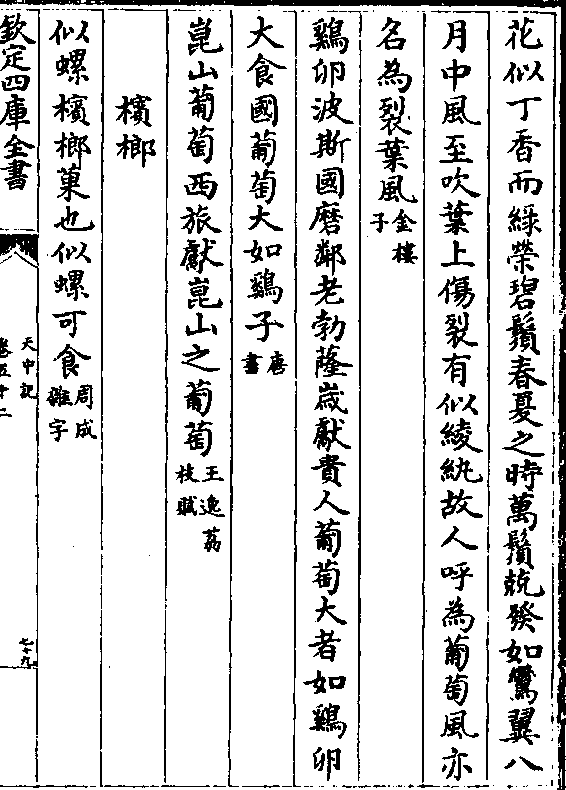 花似丁香而綠榮碧鬚春夏之時萬鬚競發如鸞翼八
月中風至吹葉上傷裂有似綾紈故人呼為葡萄風亦
名為裂葉風金樓子
鷄卵波斯國磨鄰老勃薩嵗獻貴人葡萄大者如鷄卵
大食國葡萄大如鷄子唐書
崑山葡萄西旅獻崑山之葡萄王逸荔枝賦
檳榔
似螺檳榔菓也似螺可食周成雜字
欽定四庫全書
天中記
卷五十二
七十九